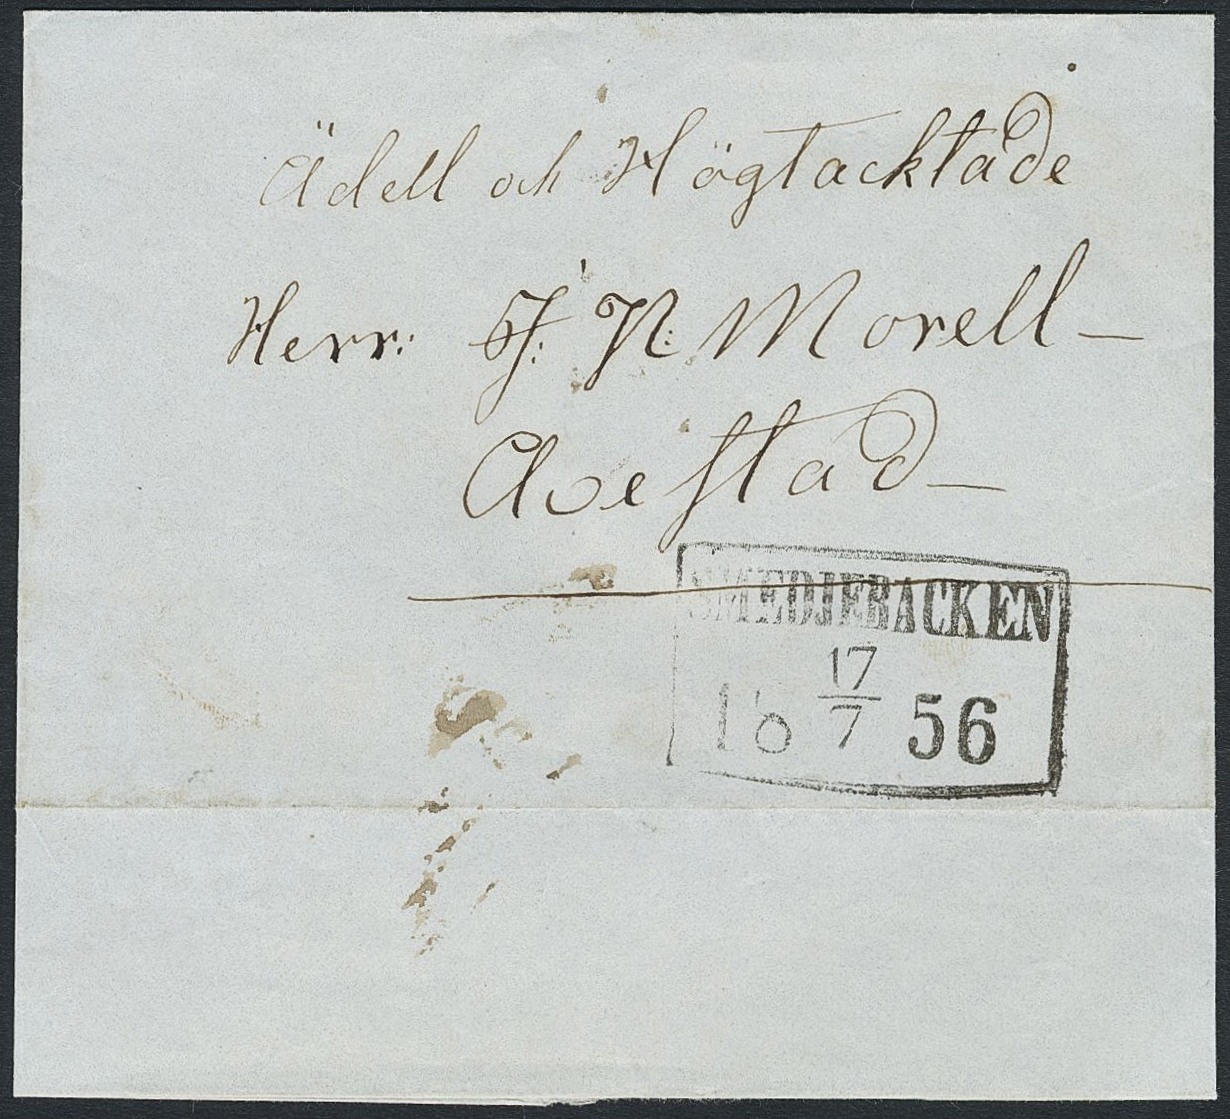 Ädell och Högtacktade
Herr: J: N: Morell
Avestad
SMEDJEBACKEN
17
18 56
7